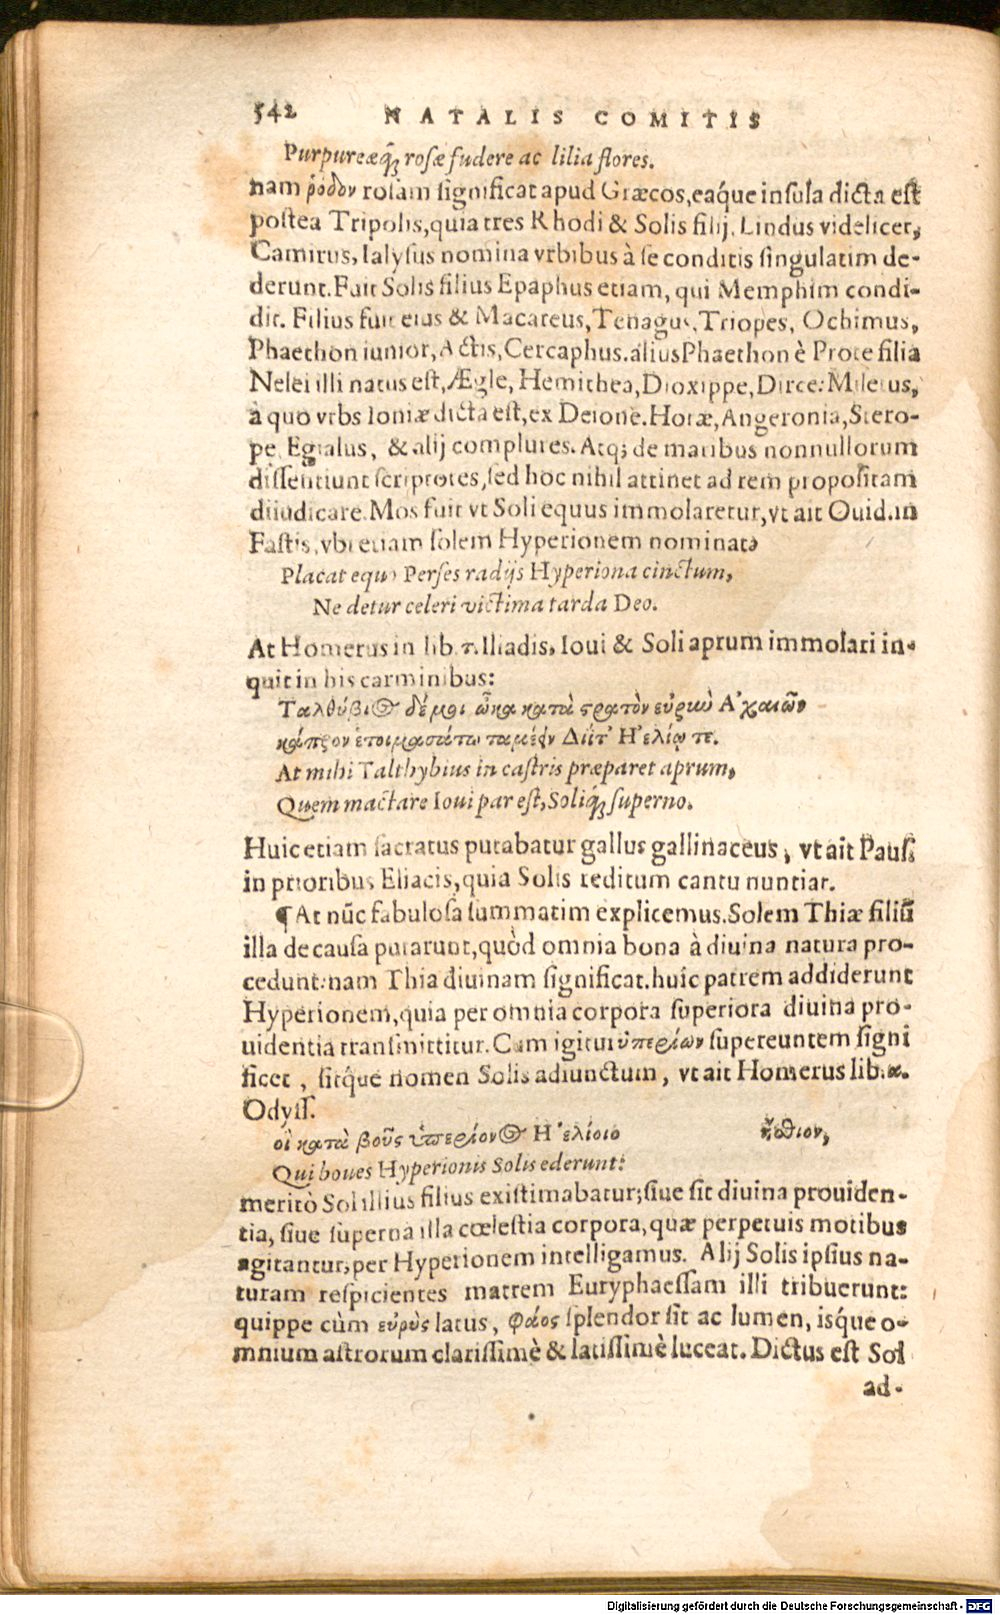 542 NATALIS COMITIS
Purpureæq́; rosæ fudere ac lilia flores.
nam ῥόδον rosam significat apud Græcos, eáque insula dicta est
postea Tripolis, quia tres Rhodi & Solis filij, Lindus videlicet,
Camirus, Ialysus nomina vrbibus à se conditis singulatim de-
derunt. Fuit Solis filius Epaphus etiam, qui Memphim condi-
dit. Filius fuit eius & Macareus, Tenagus, Triopes, Ochimus,
Phaethon iunior, Actis, Cercaphus. alius Phaethon è Prote filia
Nelei illi natus est, Ægle, Hemithea, Dioxippe, Dirce: Miletus,
à quo vrbs Ioniæ dicta est, ex Deione. Horæ, Angeronia, Stero-
pe, Egialus, & alij complures. Atq; de matibus nonnullorum
dissentiunt scriptores, sed hoc nihil attinet ad rem propositam
diiudicare. Mos fuit vt Soli equus immolaretur, vt ait Ouid. in
Fastis, vbi etiam solem Hyperionem nominat,
Placat equo Perses radijs Hyperiona cinctum,
Ne detur celeri victima tarda Deo.
At Homerus in lib. τ. Iliadis, Ioui & Soli aprum immolari in-
quit in his carminibus:
Ταλθύβιος δέ μοι ὦκα κατὰ στρατὸν εὐρὺν Ἀχαιῶν
κάπρον ἑτοιμασάτω ταμέειν Διΐ τ' Ἠελίῳ τε.
At mihi Talthybius in castris præparet aprum,
Quem mactare Ioui par est, Soliq́; superno.
Huic etiam sacratus putabatur gallus gallinaceus, vt ait Paus.
in prioribus Eliacis, quia Solis reditum cantu nuntiat.
¶ At nũc fabulosa summatim explicemus. Solem Thiæ filiũ
illa de causa putarunt, quòd omnia bona à diuina natura pro-
cedunt: nam Thia diuinam significat. huic patrem addiderunt
Hyperionem, quia per omnia corpora superiora diuina pro-
uidentia transmittitur. Cum igitur ὑπερίων supereuntem signi
ficet, sitq́ue nomen Solis adiunctum, vt ait Homerus lib. α.
Odyss.
οἳ κατὰ βοῦς ὑπερίονος Ἠελίοιο ἤσθιον,
Qui boues Hyperionis Solis ederunt:
meritò Sol illius filius existimabatur; siue sit diuina prouiden-
tia, siue superna illa cœlestia corpora, quæ perpetuis motibus
agitantur, per Hyperionem intelligamus. Alij Solis ipsius na-
turam respicientes matrem Euryphaessam illi tribuerunt:
quippe cùm εὐρὺς latus, φάος splendor sit ac lumen, isq́ue o-
mnium astrorum clarissimè & latissimè luceat. Dictus est Sol
ad-
Digitalisierung gefördert durch die Deutsche Forschungsgemeinschaft - DFG